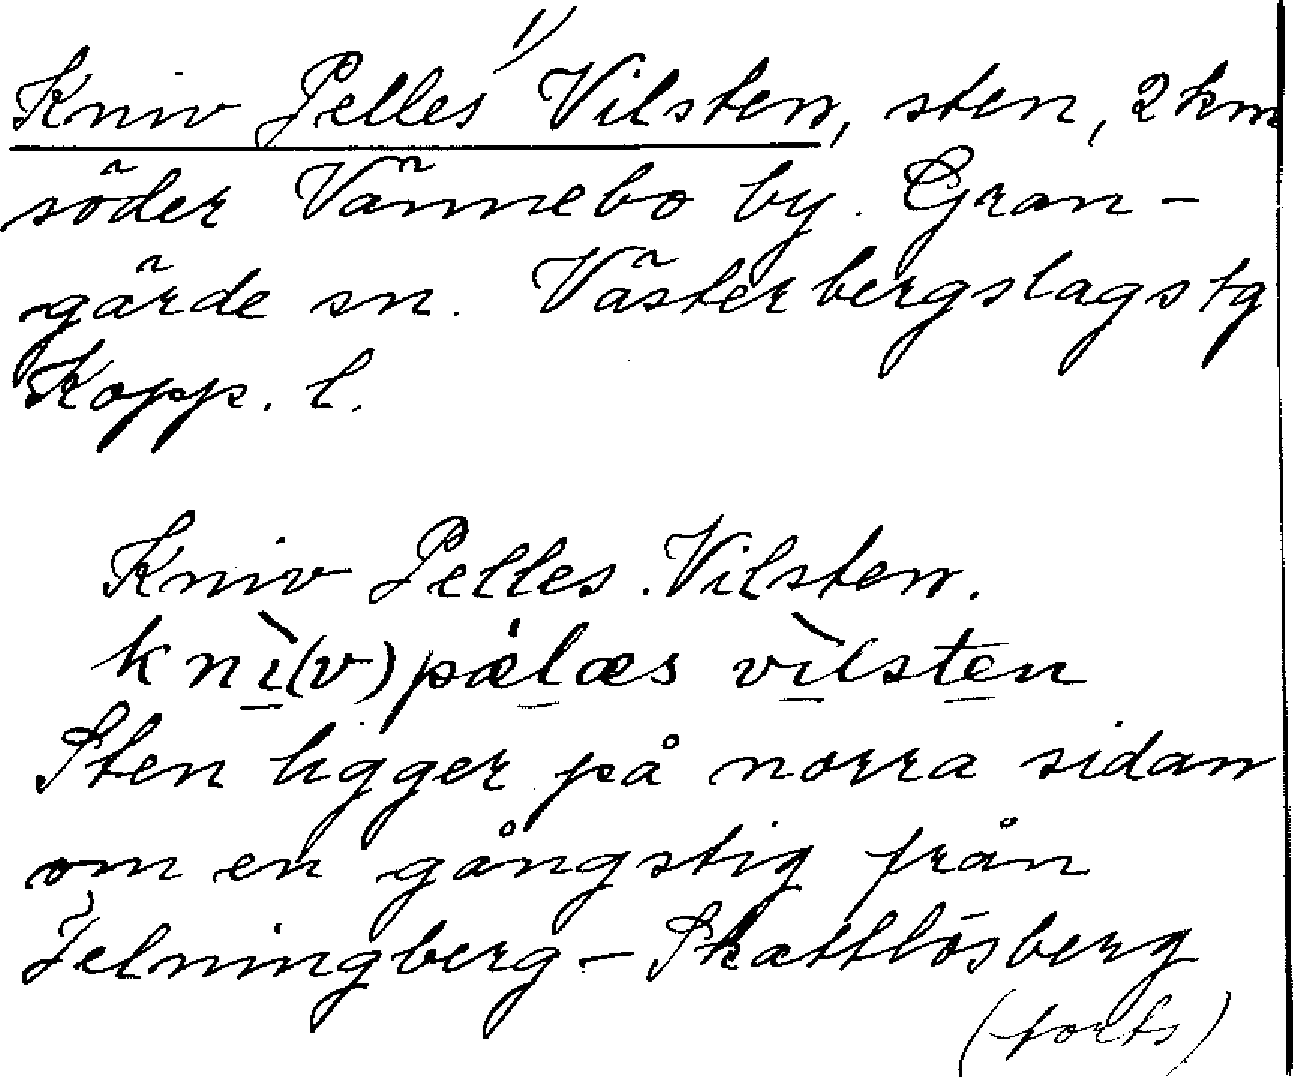 Kniv Pelles 1) Vilsten, sten, 2 km
söder Vännebo by. Gran-
gärde sn. Västerbergslags tg
Kopp. l.
Kniv Pelles Vilsten.
knì(v)pælæs vìlsten
Sten ligger på norra sidan
om en gångstig från
Jelningberg - Skattlösberg
(forts)